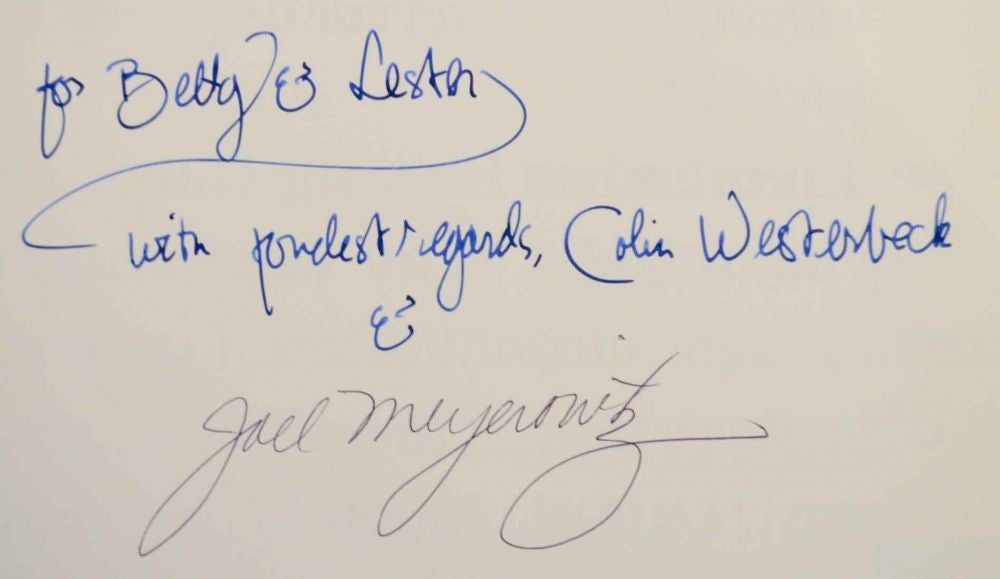 for Betty & Lester
with fondest regards, Colin Westerbeck
&
Joel Meyerowitz